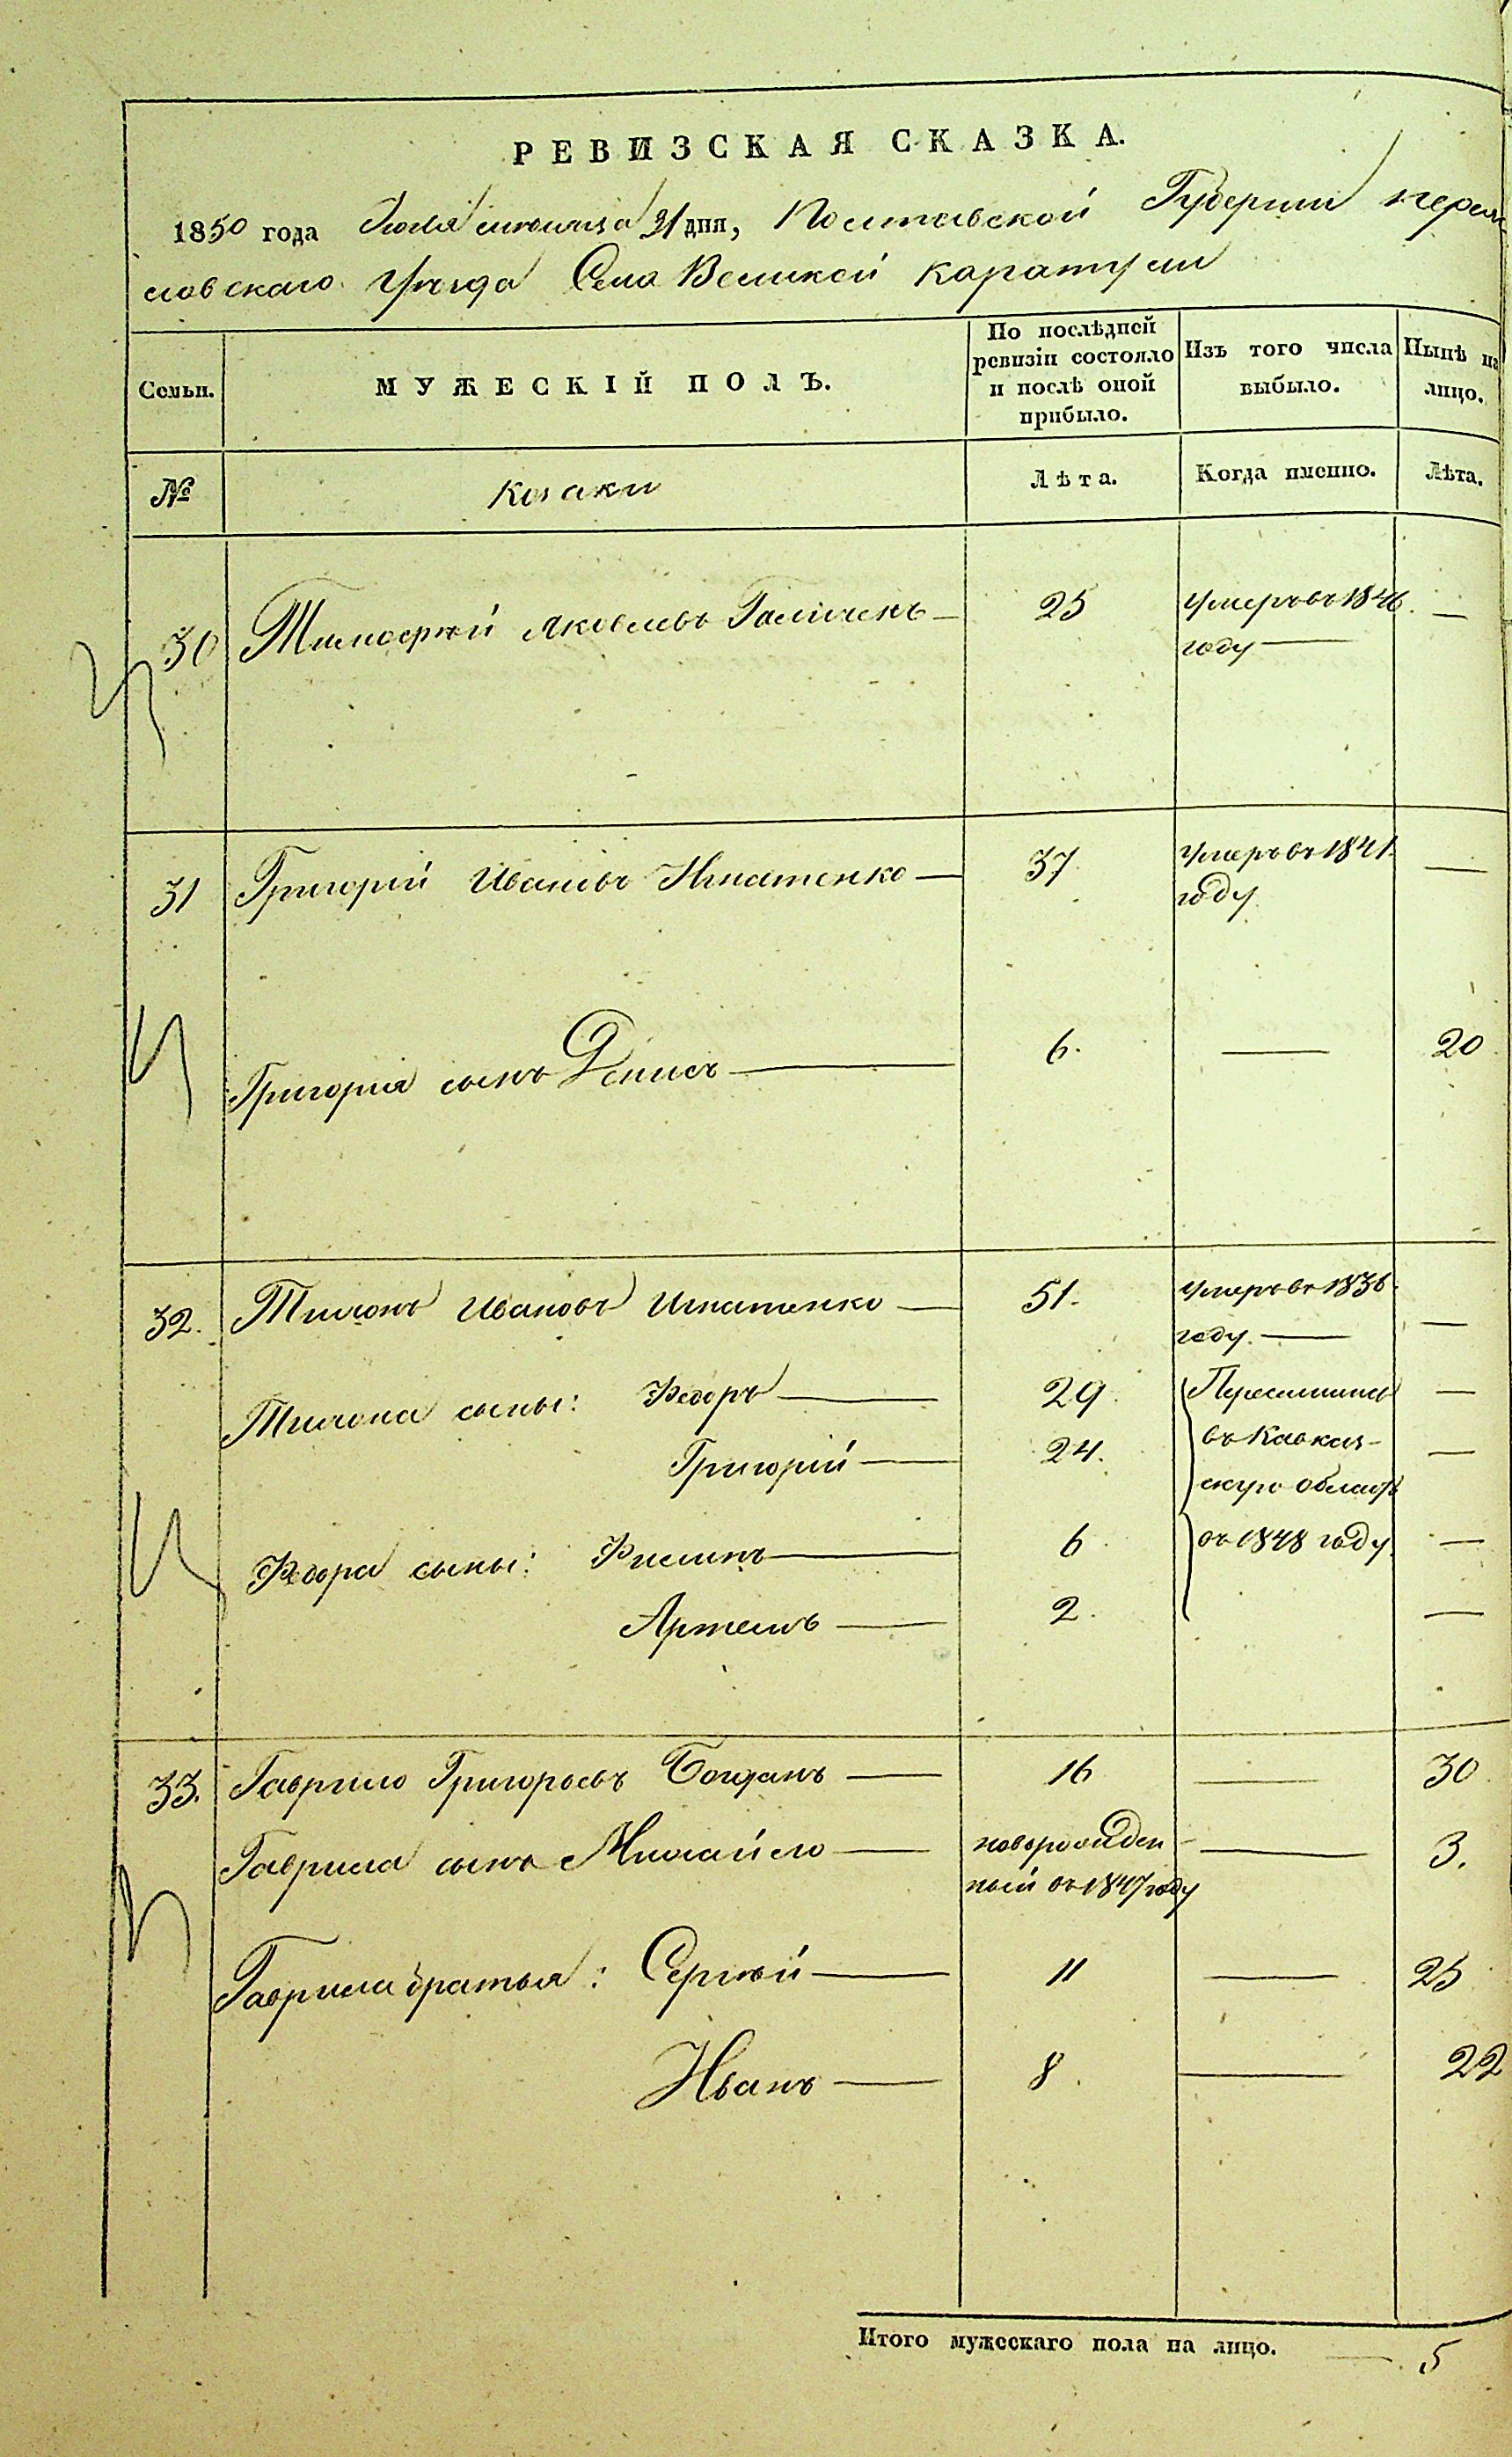 РЕВИЗСКАЯ СКАЗКА.
1850 года Іюля месяца 31 дня, Полтавской Губерніи перея
словскаго Уезда Села Великой каратули
Семьи. МУЖЕСКІЙ ПОЛЪ. По послѣдней ревизіи состояло и послѣ оной прибыло. Изъ того числа выбыло. Нынѣ на лицо.
№ козаки Лѣта. Когда именно. Лѣта.
30 Тимофей Яковлевъ 25 Умеръ въ 1846 —
году —
31 Григорій Ивановъ Игнатенко — 37 Умеръ въ 1841. —
году
Григорія сынъ Денисъ — 6. — 20
32. Тихонъ Ивановъ Игнатенко — 51. Умеръ въ 1836. —
году. —
Тихона сыны: Федоръ — 29. Переселились —
въ Кавказ-
Григорій — 24. —
скую область
Федора сыны: Филипъ — 6 въ 1848 году. —
Артемъ — 2. —
33. Гаврило Григорьевъ Богданъ — 16 — 30
Гаврила сынъ Михайло — новорожден — 3.
ный въ 1847 году
Гаврила братья: Сергѣй — 11 — 25
Иванъ — 8. — 22
Итого мужескаго пола на лицо. — 5